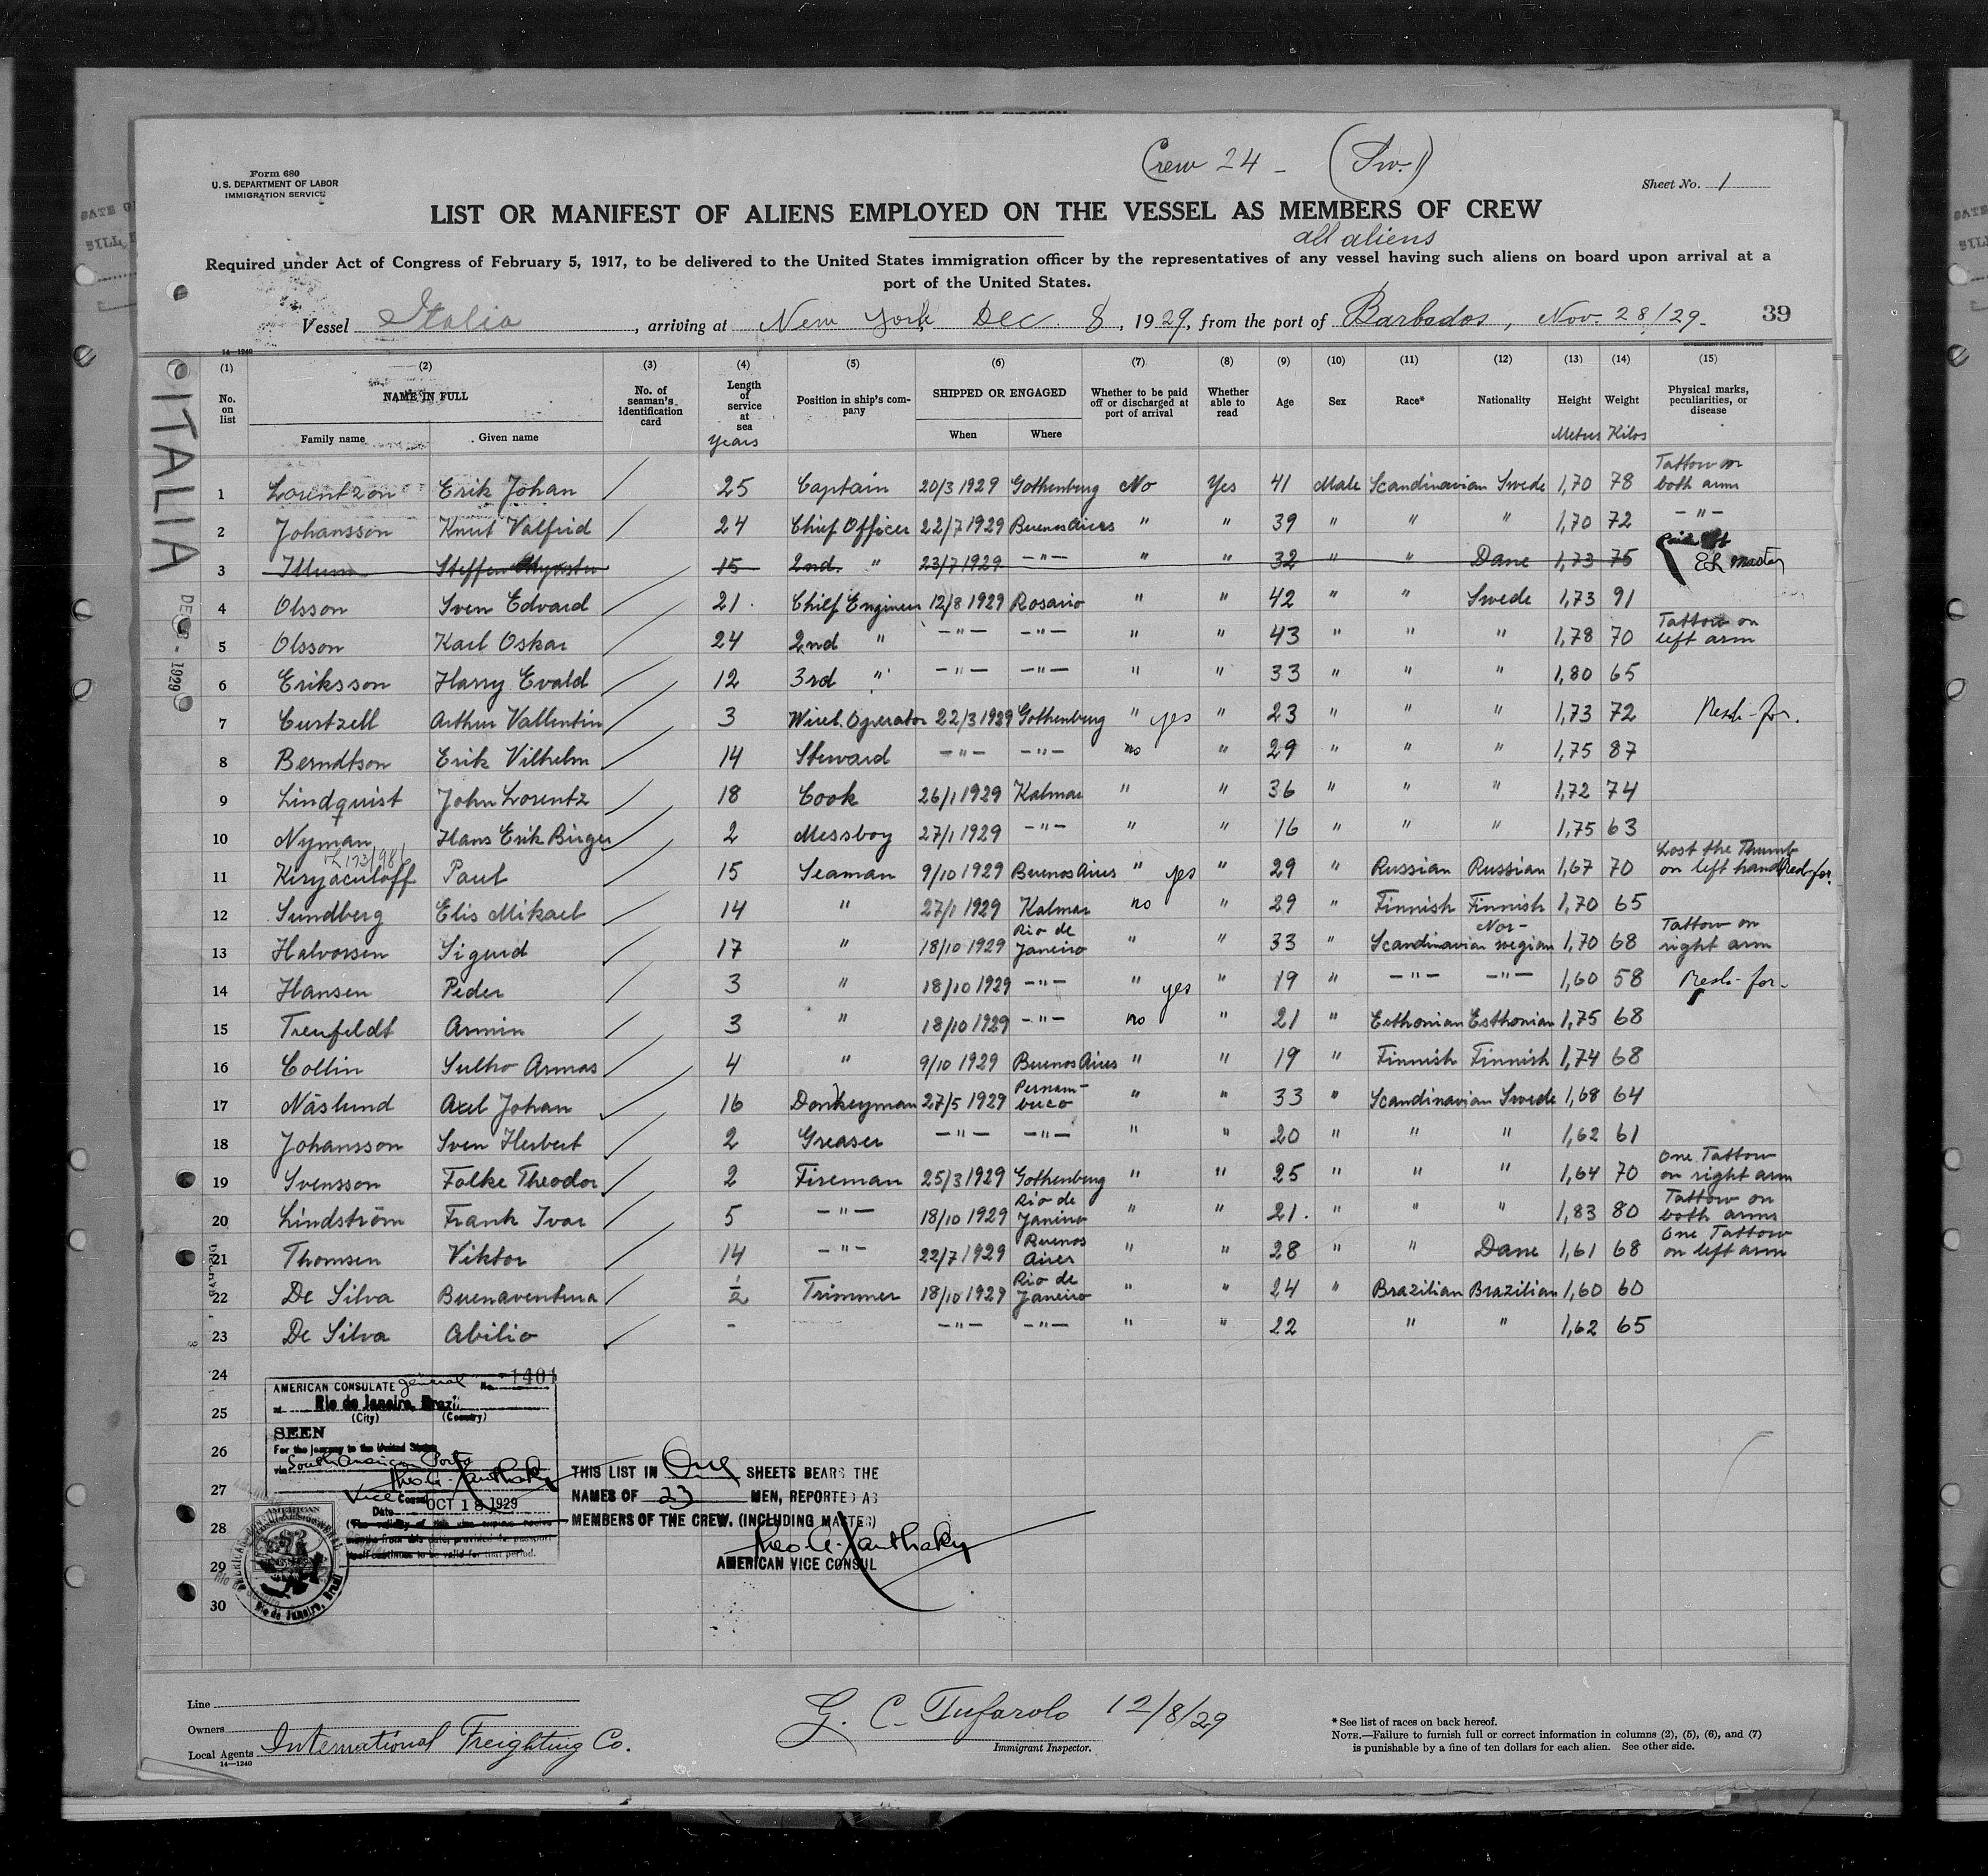 Crew 24 - (Sw.)
Form 680
U. S. DEPARTMENT OF LABOR
IMMIGRATION SERVICE
Sheet No. 1
LIST OR MANIFEST OF ALIENS EMPLOYED ON THE VESSEL AS MEMBERS OF CREW
all aliens
Required under Act of Congress of February 5, 1917, to be delivered to the United States immigration officer by the representatives of any vessel having such aliens on board upon arrival at a
port of the United States.
Vessel Italia, arriving at New York Dec. 8, 1929, from the port of Barbados, Nov. 28/29. 39
14—1240
ITALIA
(1) (2) (3) (4) (5) (6) (7) (8) (9) (10) (11) (12) (13) (14) (15)
No. on list NAME IN FULL No. of seaman's identification card Length of service at sea Position in ship's company SHIPPED OR ENGAGED Whether to be paid off or discharged at port of arrival Whether able to read Age Sex Race* Nationality Height Weight Physical marks, peculiarities, or disease
Family name Given name Years When Where Metres Kilos
1 Lorentzon Erik Johan 25 Captain 20/3 1929 Gothenburg No Yes 41 Male Scandinavian Swede 1,70 78 Tattow on both arms
2 Johansson Knut Valfrid 24 Chief Officer 22/7 1929 Buenos Aires " " 39 " " " 1,70 72 - " -
3 Illum Steffen 15 2nd. " 23/7 1929 - " - " " 32 " " Dane 1,73 75 Paid off EL Master
4 Olsson Sven Edvard 21. Chief Engineer 12/8 1929 Rosario " " 42 " " Swede 1,73 91
5 Olsson Karl Oskar 24 2nd " - " - - " - " " 43 " " " 1,78 70 Tattow on left arm
6 Eriksson Harry Evald 12 3rd " - " - - " - " " 33 " " " 1,80 65
7 Curtzell Arthur Vallentin 3 Wirel. Operator 22/3 1929 Gothenburg " yes " 23 " " " 1,73 72 Resh-for.
8 Berndtson Erik Vilhelm 14 Steward - " - - " - no " 29 " " " 1,75 87
9 Lindquist John Lorentz 18 Cook 26/1 1929 Kalmar " " 36 " " " 1,72 74
10 Nyman Hans Erik Birger 2 Messboy 27/1 1929 - " - " " 16 " " " 1,75 63
11 Kirjaculoff Paul 15 Seaman 9/10 1929 Buenos Aires " yes " 29 " Russian Russian 1,67 70 Lost the Thumb on left hand Resh-for.
12 Sundberg Elis Mikael 14 " 27/1 1929 Kalmar no " 29 " Finnish Finnish 1,70 65
13 Halvorsen Sigurd 17 " 18/10 1929 Rio de Janeiro " " 33 " Scandinavian Norwegian 1,70 68 Tattow on right arm
14 Hansen Peder 3 " 18/10 1929 - " - " yes " 19 " - " - - " - 1,60 58 Resh-for.
15 Treufeldt Armin 3 " 18/10 1929 - " - no " 21 " Esthonian Esthonian 1,75 68
16 Collin Sulho Armas 4 " 9/10 1929 Buenos Aires " " 19 " Finnish Finnish 1,74 68
17 Näslund Axel Johan 16 Donkeyman 27/5 1929 Pernambuco " " 33 " Scandinavian Swede 1,68 64
18 Johansson Sven Herbert 2 Greaser - " - - " - " " 20 " " " 1,62 61
19 Svensson Folke Theodor 2 Fireman 25/3 1929 Gothenburg " " 25 " " " 1,64 70 One Tattow on right arm
20 Lindström Frank Ivar 5 - " - 18/10 1929 Rio de Janeiro " " 21. " " " 1,83 80 Tattow on both arms
21 Thomsen Viktor 14 - " - 22/7 1929 Buenos Aires " " 28 " " Dane 1,61 68 One Tattow on left arm
22 De Silva Buenaventura 1/2 Trimmer 18/10 1929 Rio de Janeiro " " 24 " Brazilian Brazilian 1,60 60
23 De Silva Abilio - - " - - " - " " 22 " " 1,62 65
24
25
26
27
28
29
30
AMERICAN CONSULATE general No. 1401
at Rio de Janeiro, Brazil
(City) (Country)
SEEN
For the journey to the United States
via South American Ports
Theo. A. Xanthaky
Vice Consul
Date OCT 18 1929
THIS LIST IN One SHEETS BEARS THE
NAMES OF 23 MEN, REPORTED AS
MEMBERS OF THE CREW. (INCLUDING MASTER)
Theo. A. Xanthaky
AMERICAN VICE CONSUL
Line
Owners
Local Agents International Freighting Co.
14—1240
G. C. Tufarolo 12/8/29
Immigrant Inspector.
* See list of races on back hereof.
NOTE.—Failure to furnish full or correct information in columns (2), (5), (6), and (7)
is punishable by a fine of ten dollars for each alien. See other side.